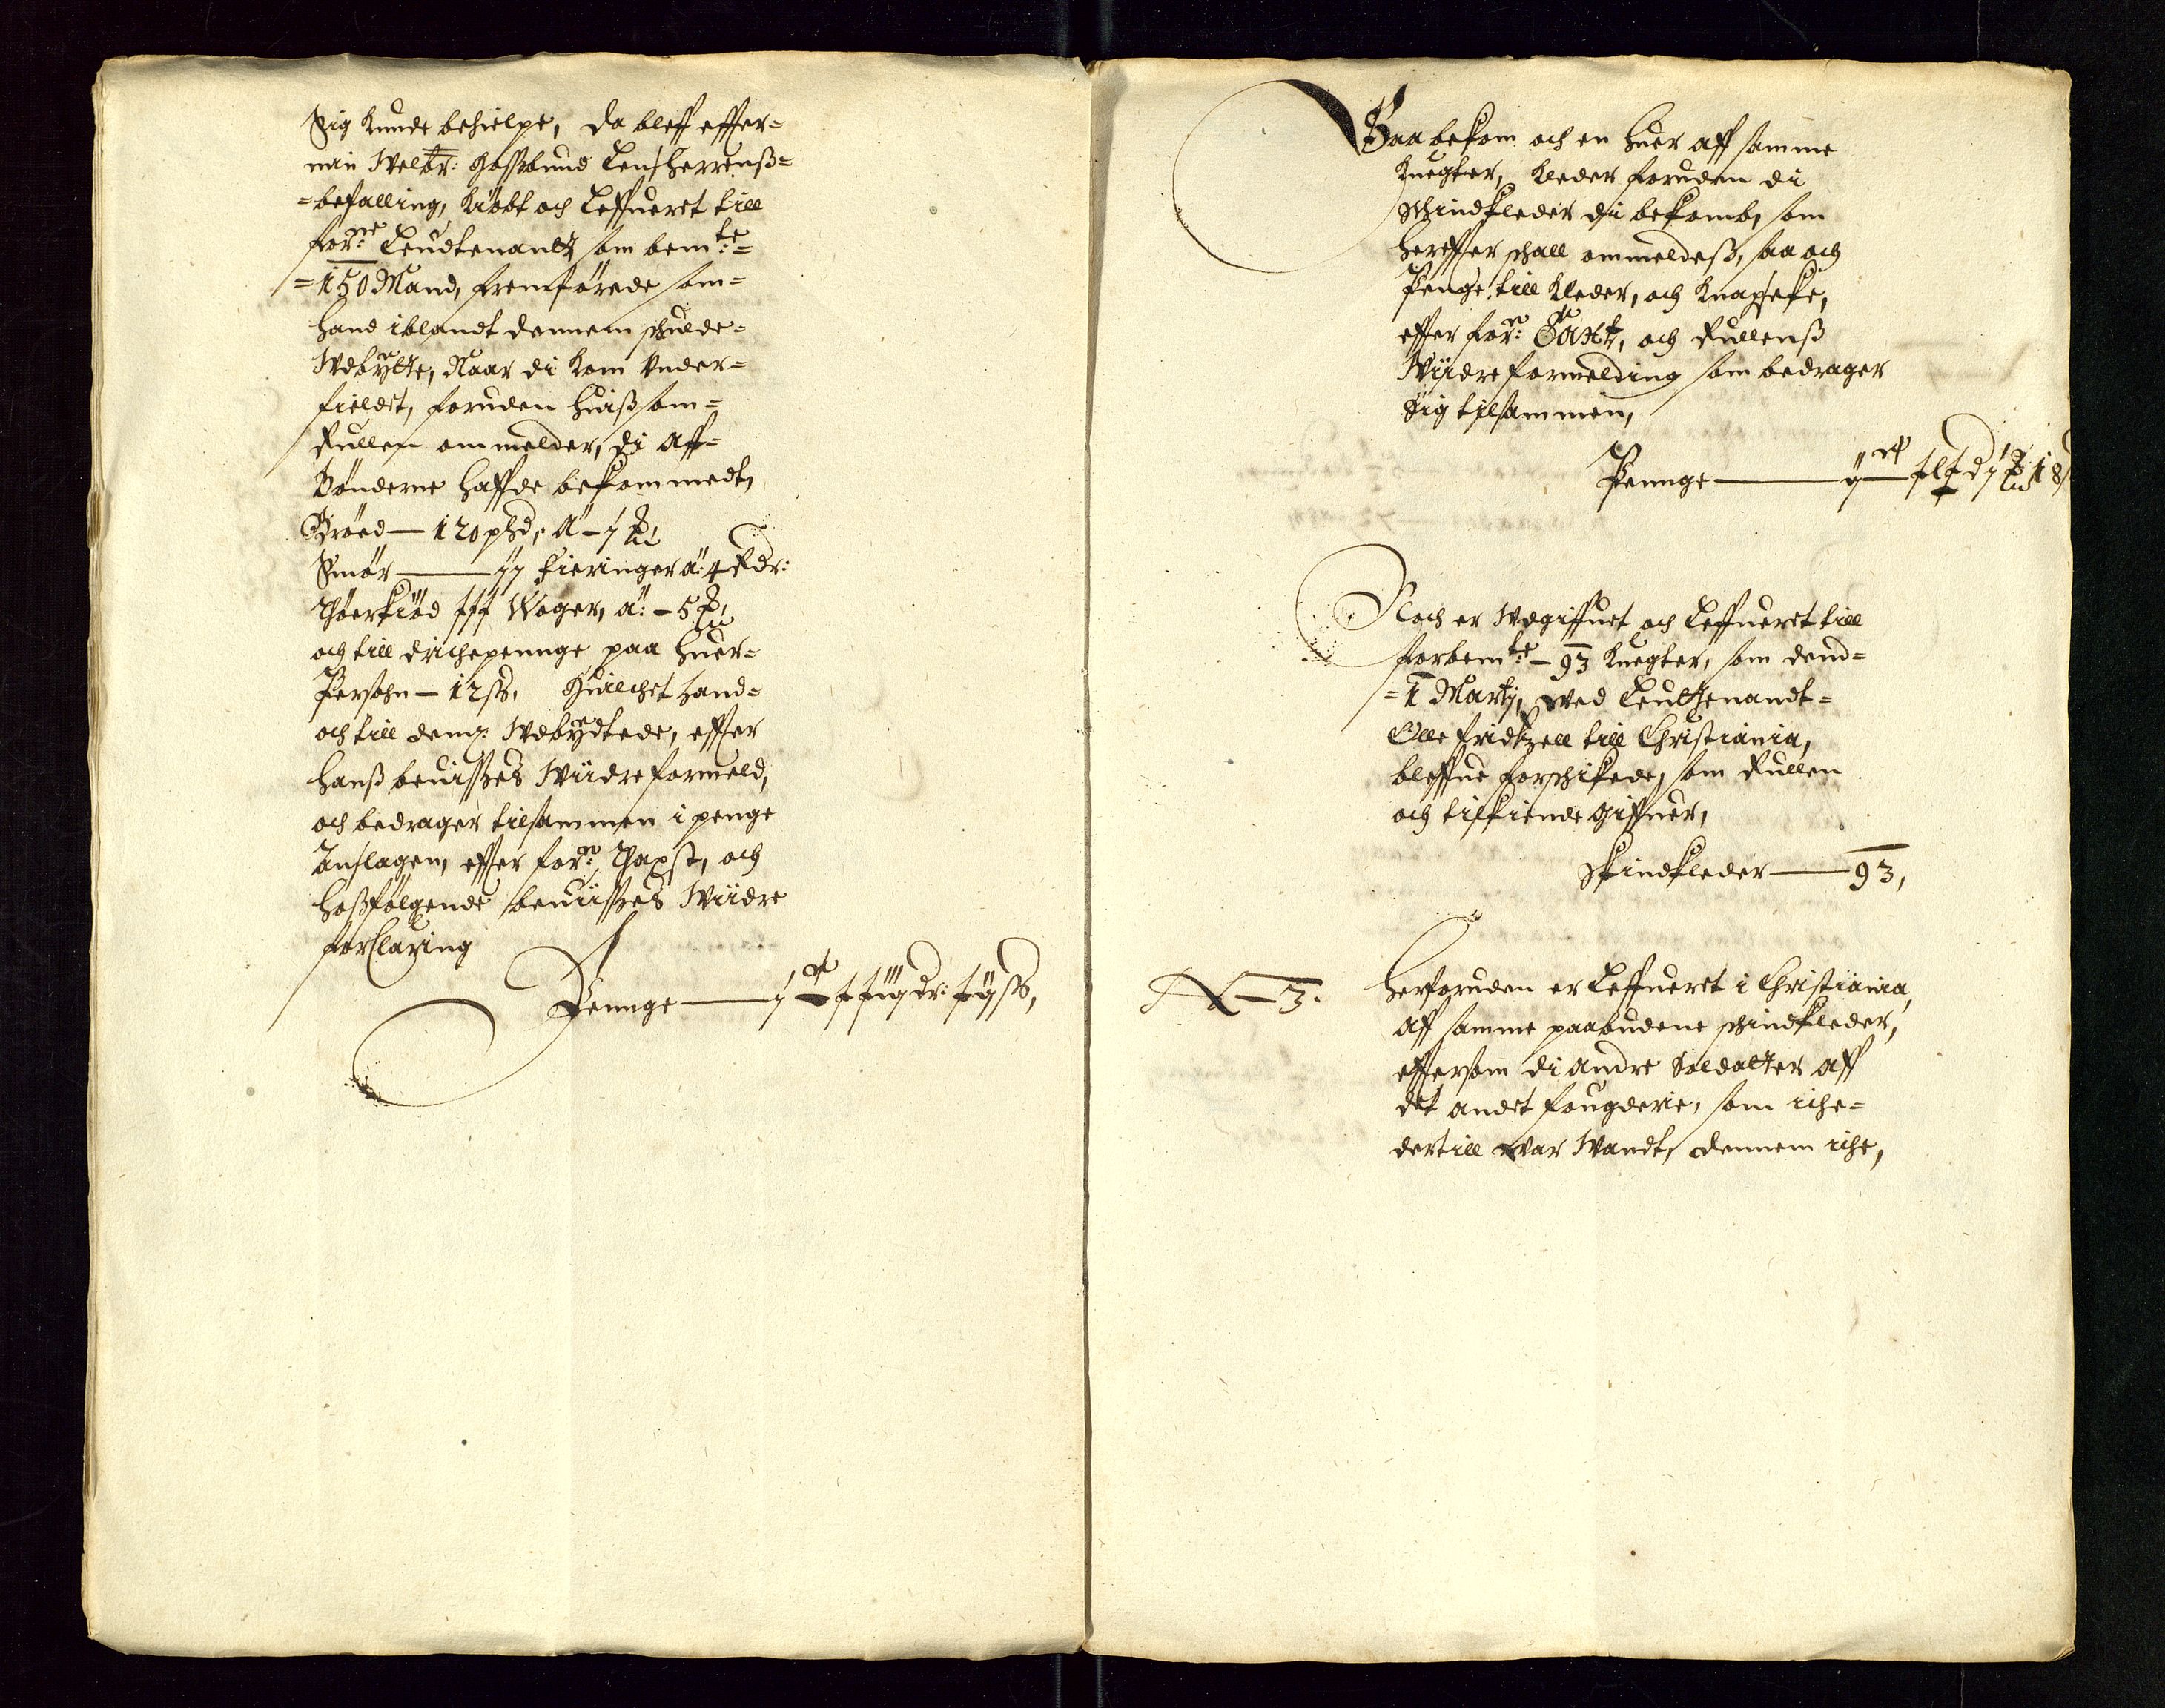 Sig kunde behielpe, da bleff effter=
min Welbr: Hoffbund Lensherrenß=
=befalling, kiøbt och Leffueret till
forne: Leudtenantz som bemte:=
=150 Mand, fremførede som=
hand iblandt dennem schulde=
Wdbytte, Naar di kom under=
fieldet, foruden huiß som=
Rullen ommelder, di aff=
Bønderne haffde bekommedt,
Brøed — 120 pd, a —
Smør — fieringer a: 4 Rdr:
Tøerkiød iii Woger, a: — 5
och till drichepennge paa huer=
Persohn — 12 ß, Huilchet hand=
och till dem Wdbydtede, effter
hanß beuisses Wiidre formeld,
och bedrager tilsammen i penge
Anslagen, effter forn: Taxst, och
hoßfølgende beuisses Wiidre
forClaring
Pennge —
Saa bekom och en huer aff samme
Knegter, kleder foruden di
Schindkleder di bekomb, som
hereffter schall ommeldeß, saa och
Penge till kleder, och knapseke,
effter forn: Taxt, och Rullenß
Wiidre formelding som bedrager
Sig tilsammen,
Pennge —
Noch er Wdgiffuet och Leffueret till
forbemte: — 93 Knegter, som dend=
=1 Martij, med Leuttenandt=
Olle fridtzell till Christiania,
bleffue forschikede, som Rullen
och tilkiende giffuer,
Skindkleder — 93,
N — 3.
Herforuden er Leffueret i Christiania,
aff samme paabudene schindkleder,
effterson di andre Soldatter aff
det andet fougderie, som iche=
dertill war Wandt, dennem iche,